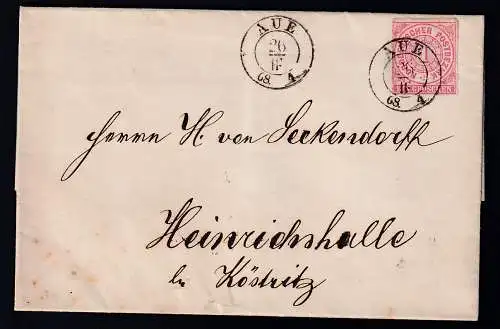 AUE
26
II
68. 4.
AUE
26
II
68. 4.
CHER POSTBE
GROSCHEN
Herrn H. von Seckendorff
Heinrichshalle
b/ Köstritz